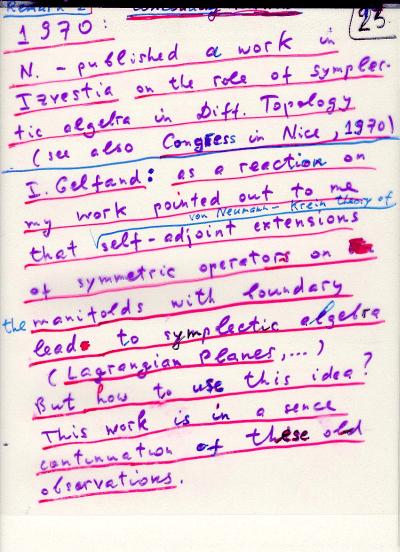 Remark 2
23.
1970:
N. - published a work in
Izvestia on the role of symplec-
tic algebra in Diff. Topology
(see also Congress in Nice, 1970)
I. Gelfand: as a reaction on
my work pointed out to me
von Neumann-Krein theory of
that self-adjoint extensions
of symmetric operators on
the manifolds with boundary
leads to symplectic algebra
(Lagrangian planes,...)
But how to use this idea?
This work is in a sence
continuation of these old
observations.